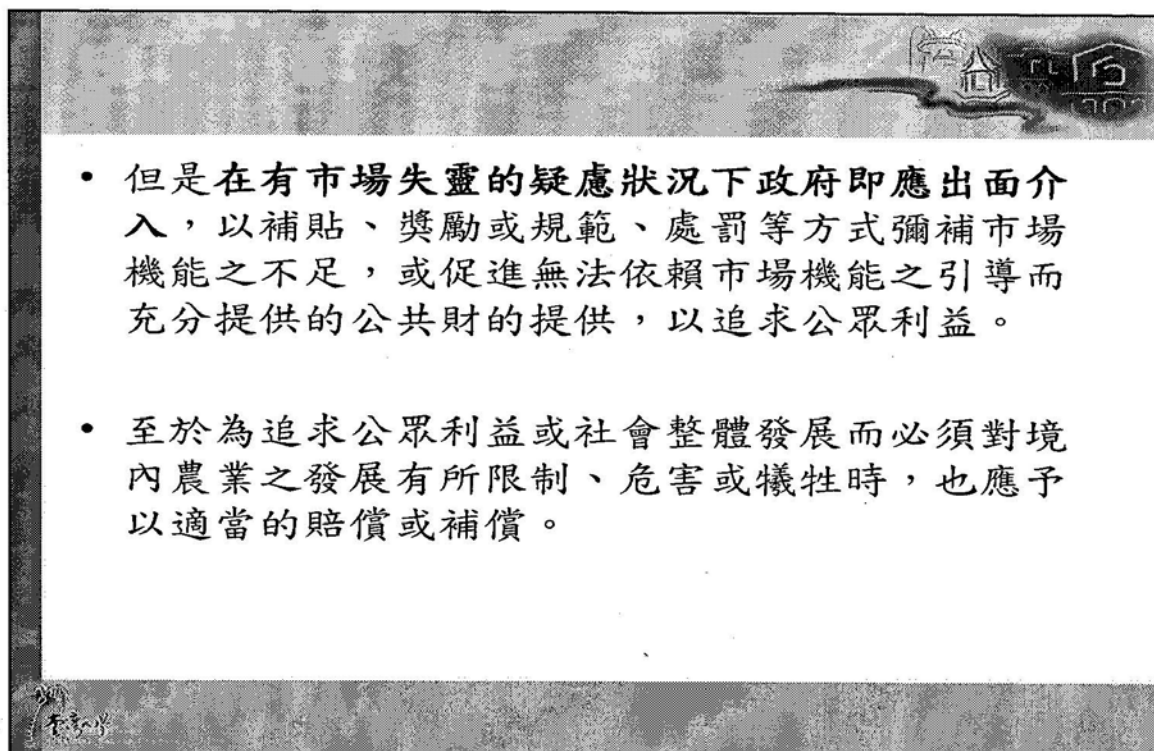 • 但是在有市場失靈的疑慮狀況下政府即應出面介
入，以補貼、獎勵或規範、處罰等方式彌補市場
機能之不足，或促進無法依賴市場機能之引導而
充分提供的公共財的提供，以追求公眾利益。
• 至於為追求公眾利益或社會整體發展而必須對境
內農業之發展有所限制、危害或犧牲時，也應予
以適當的賠償或補償。